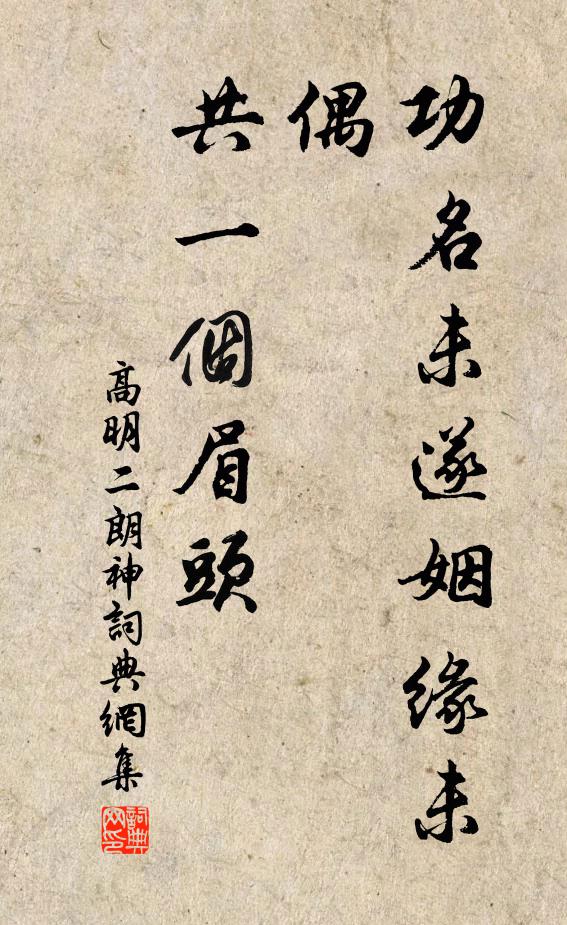 功名未遂姻緣未
偶
共一個眉頭
高明二朗神詞典網集
詞典
网印